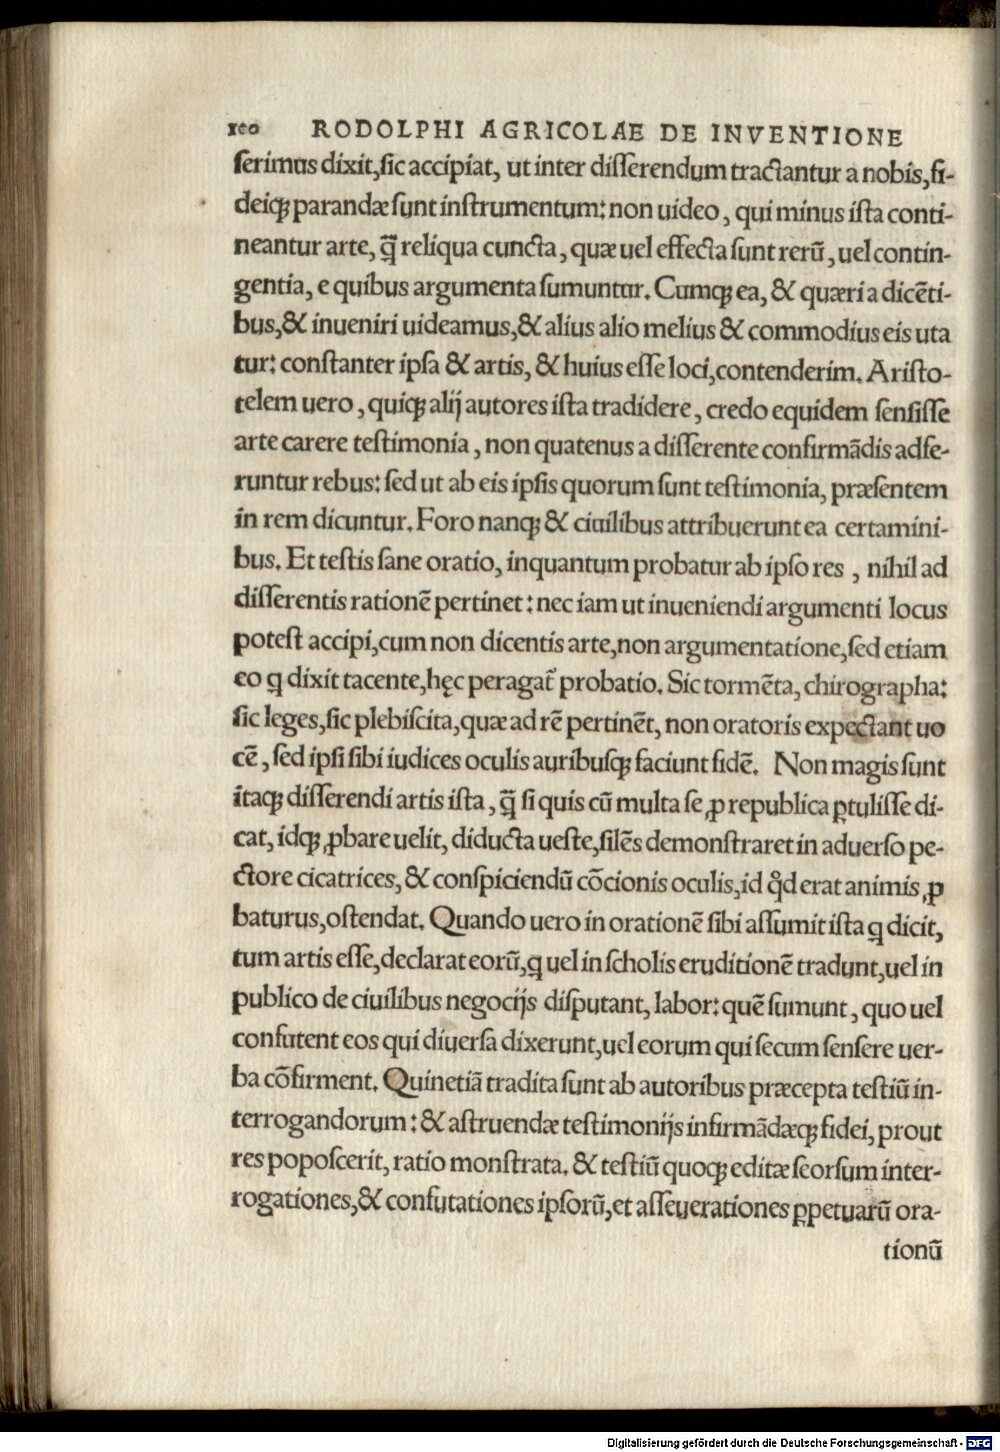 100 RODOLPHI AGRICOLAE DE INVENTIONE
ſerimus dixit,ſic accipiat, ut inter diſſerendum tractantur a nobis,fi-
deiq; parandæ ſunt inſtrumentum: non uideo, qui minus iſta conti-
neantur arte, q̃ reliqua cuncta, quæ uel effecta ſunt rerũ, uel contin-
gentia, e quibus argumenta ſumuntur. Cumq; ea, & quæri a dicẽti-
bus,& inueniri uideamus,& alius alio melius & commodius eis uta
tur: conſtanter ipſa & artis, & huius eſſe loci,contenderim. Ariſto-
telem uero, quiq; alij autores iſta tradidere, credo equidem ſenſiſſe
arte carere teſtimonia, non quatenus a diſſerente confirmãdis adfe-
runtur rebus: ſed ut ab eis ipſis quorum ſunt teſtimonia, præſentem
in rem dicuntur. Foro nanq; & ciuilibus attribuerunt ea certamini-
bus. Et teſtis ſane oratio, inquantum probatur ab ipſo res, nihil ad
diſſerentis rationẽ pertinet: nec iam ut inueniendi argumenti locus
poteſt accipi,cum non dicentis arte,non argumentatione,ſed etiam
eo q dixit tacente,hęc peragat᷑ probatio. Sic tormẽta, chirographa:
ſic leges,ſic plebiſcita,quæ ad rẽ pertinẽt, non oratoris expectant uo
cẽ, ſed ipſi ſibi iudices oculis auribuſq; faciunt fidẽ. Non magis ſunt
itaq; diſſerendi artis iſta, q̃ ſi quis cũ multa ſe ꝓ republica ꝑtuliſſe di-
cat, idq; ꝓbare uelit, diducta ueſte,ſilẽs demonſtraret in aduerſo pe-
ctore cicatrices, & conſpiciendũ cõcionis oculis,id qd̾ erat animis ꝓ
baturus,oſtendat. Quando uero in orationẽ ſibi aſſumit iſta q dicit,
tum artis eſſe,declarat eorũ,q uel in ſcholis eruditionẽ tradunt,uel in
publico de ciuilibus negocijs diſputant, labor: quẽ ſumunt, quo uel
confutent eos qui diuerſa dixerunt,uel eorum qui ſecum ſenſere uer-
ba cõfirment. Quinetiã tradita ſunt ab autoribus præcepta teſtiũ in-
terrogandorum: & aſtruendæ teſtimonijs infirmãdæq; fidei, prout
res popoſcerit, ratio monſtrata. & teſtiũ quoq; editæ ſeorſum inter-
rogationes,& confutationes ipſorũ,et aſſeuerationes ꝑpetuarũ ora-
tionũ
Digitalisierung gefördert durch die Deutsche Forschungsgemeinschaft - DFG